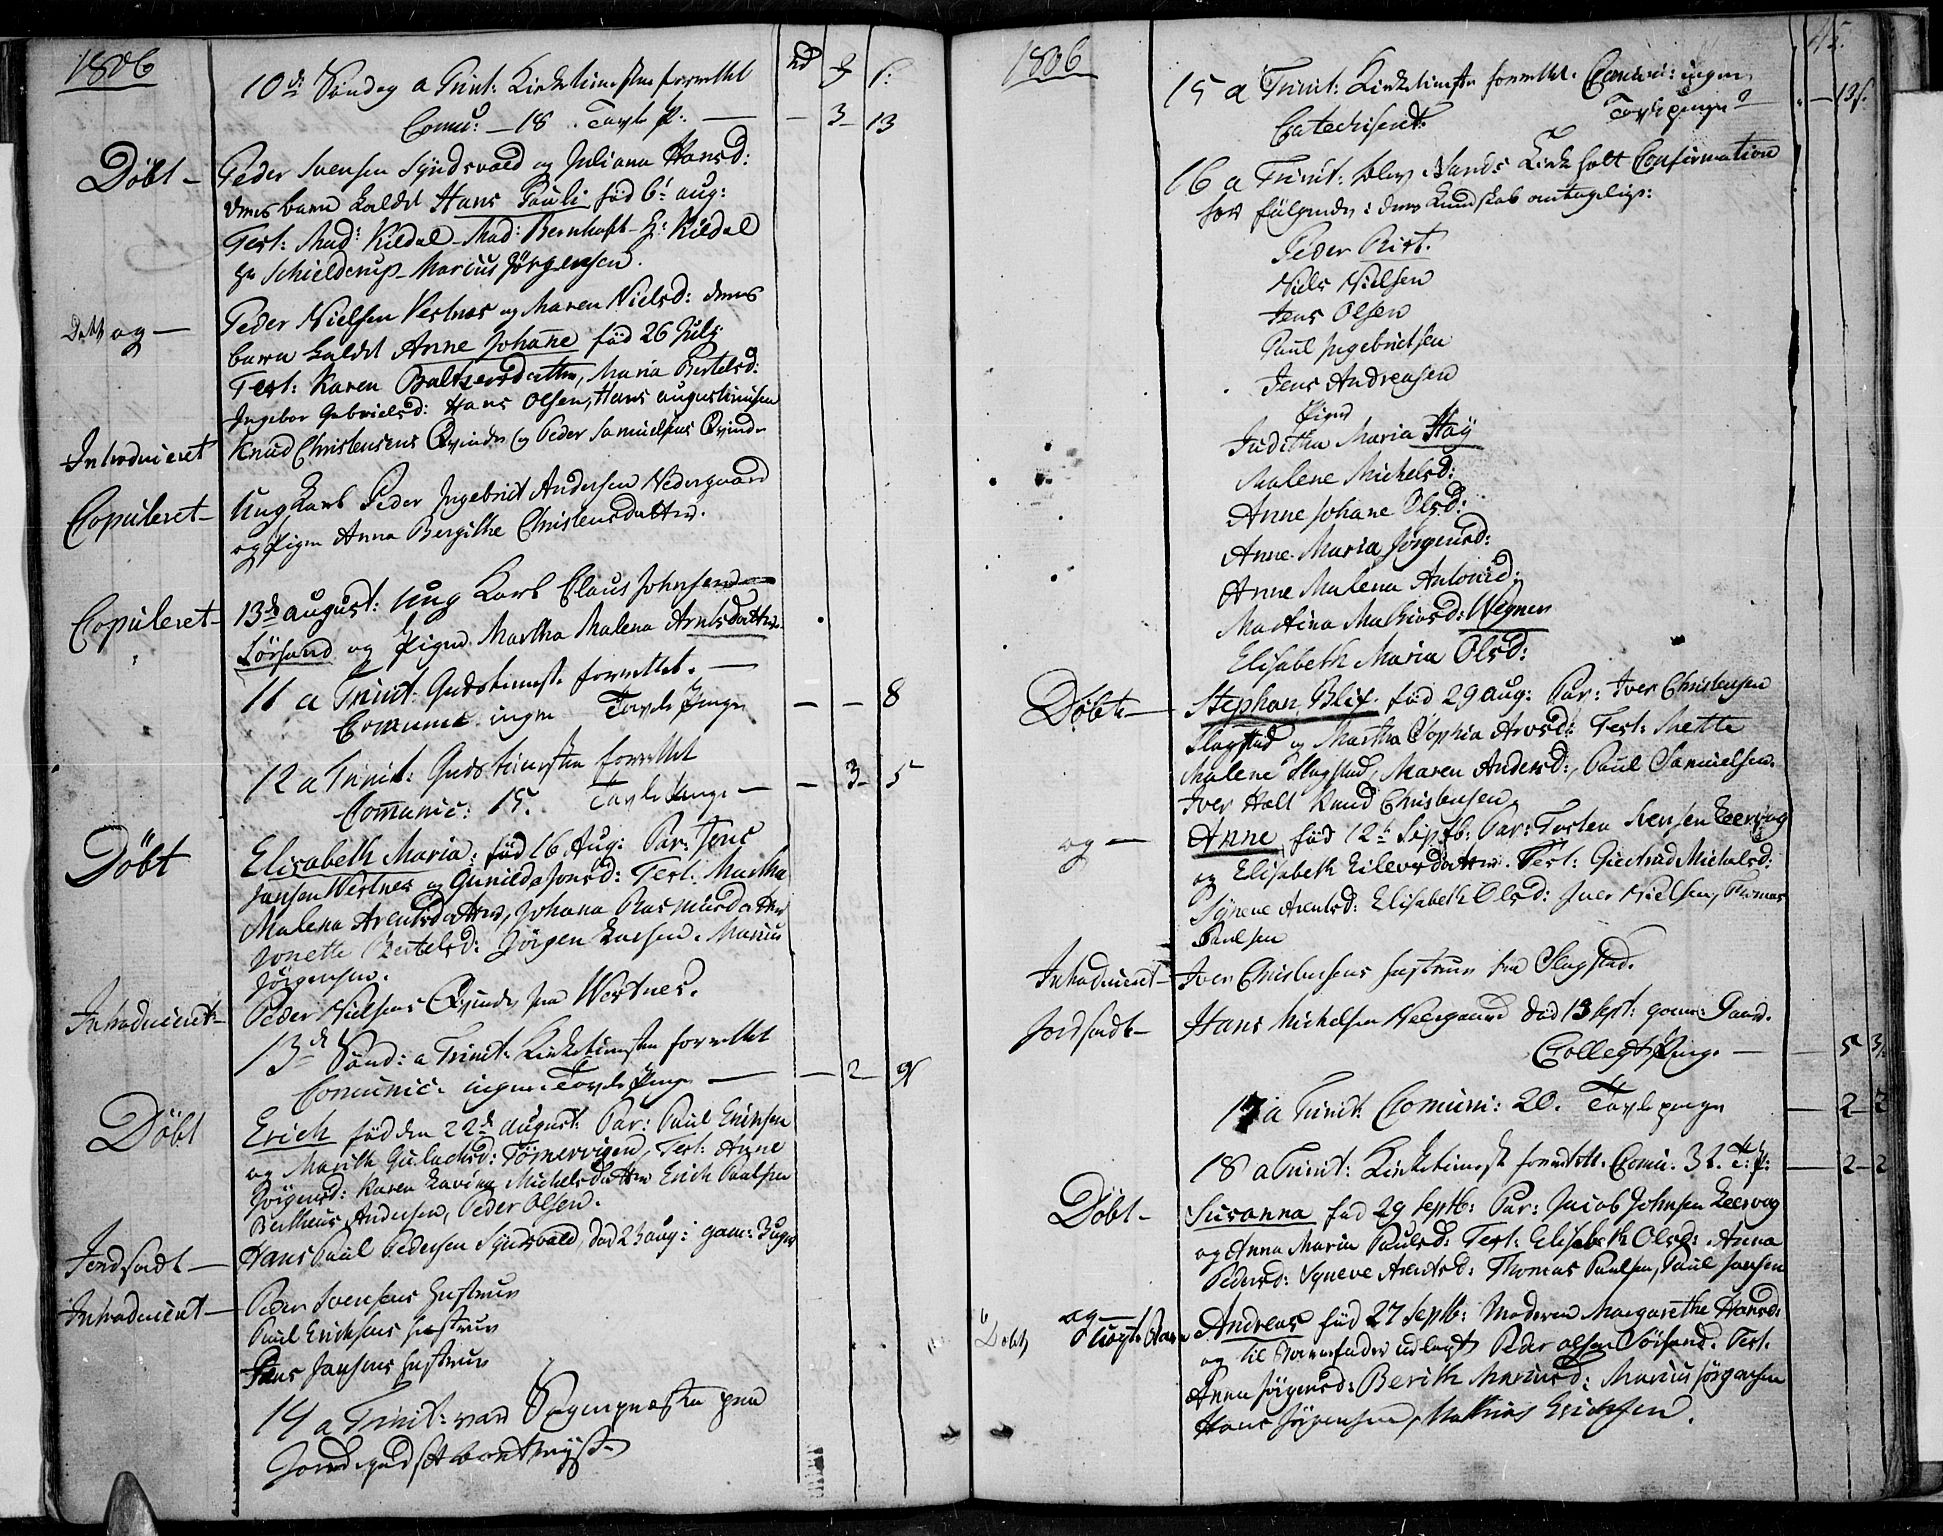 1806
10de Söndag a Trinit: Kirketienesten forrettet
rd ß s:
Comu: – 18 . Tavle P. — – 3 – 13
Döbt – Peder Svensen Syndsvald og Juliana Hansd:
deres barn kaldt Hans Pauli, föd 6t aug:
Test: Mad: Kildal – Mad: Bernhoft – H: Kildal
Hr Schielderup – Marius Jörgensen.
og — Peder Nielsen Vestnes og Maren Nielsd: deres
barn kaldt Anne Johanne föd 26 July
Test: Karen Baltzersdatter, Maria Bertelsd:
Ingebor Gabrielsd: Hans Olsen, Hans augustinusen
Introduceret Knud Christensens Qvinde og Peder Samuelsens Qvinde
Copuleret – Ung Karl Peder Ingebrict Andersen Nedergaard
og Pigen Anna Bergithe Christensdatter.
Copuleret – 13de august: Ung Karl Claus Johnsen
Sörsand og Pigen Martha Malena Arntsdatter.
11 a Trinit: Gudstienest forrettet. —
Commun: ingen Tavle Penge — — 8
12 a Trinit: Guds tienesten forrettet
Communic: 15. Tavle Penge — – 3 – 5
Döbt Elisabeth Maria: föd 16 Aug: Par: Jens
Jansen Westnes og Gunilda Jonsd: Test: Martha
Malena Arentsdatter, Johana Rasmusdatter
Jonetta Bertelsd: Jörgen Larsen. Marius
Jörgensen.
Introduceret – Peder Nielsens Qvinde fra Westnes.
13de Sönd: a Trinit: Kirketienesten forrettet
Comunic: ingen. Tavle Penge — — 2 — 9
Döbt Erich föd den 22de august: Par: Paul Erichsen
og Marith Gulachsd: Törnervigen, Test: Anne
Jörgensd: Karen Lavina Michelsdatter Erich Paulsen
Bertheus Andersen, Peder Olsen.
Jordfæstet — Hans Paul Pedersen Syndsvald, död 23 aug: gam: 3 uger
Introduceret — Peder Svensens Hustrue
Paul Erichsens hustrue
Jens Jansens hustrue
14 a Trinit: var Sognepræsten paa
1806
45.
15 a Trinit: Kirketienesten forrettet. Comuni: ingen
Catechiseret. Tavle penge — – 13 s.
16 a Trinit: blev Sands Kirke holt Confirmation
for fölgende: deres Kundskab antagelig:
Peder Rist.
Niels Nielsen
Jens Olsen
Paul Ingebrictsen
Jens Andreasen
Piger
Juditha Maria Höy
Malene Michelsd:
Anne Johane Olsd:
Anne Maria Jörgensd:
Anne Malena Antonid:
Martina Mathiasd: Wegner
Elisabeth Maria Olsd:
Döbte — Stephan Blix föd 29 aug: Par: Iver Christensen
Slagstad og Martha Sophia Arosd: Test: Mette
Malene Slagstad, Maren Andersd:, Paul Samuelsen.
Iver Holt Knud Christensen
og — Anne föd 12t Septb: Par: Torsten Svensen Leervog
og Elisabeth Eilersdatter. Test: Giertrud Michelsd:
Syneve Arentsd: Elisabeth Olsd: Iver Nielsen, Thomas
Paulsen
Introduceret – Iver Christensens hustrue fra Slagstad.
Jordfæstet – Hans Michelsen Neergaard död 13 Sept:
Collect Penge — — 5
17 a Trinit: Comuni: 20. Tavle penge — 2 – 2
18 a Trinit: Kirketienest forrettet. Comu. 32. T: P: — 2 – 2
Döbt – Susanna föd 29 Septb: Par: Jacob Johnsen Leervog
og Anna Maria Paulsd: Test: Elisabeth Olsd: Anna
Pedersd: Syneve Arentsd: Thomas Paulsen, Paul Jansen
og —
Döbt, Uægte Barn Andreas föd 27 Septb: Moderen Margarethe Hansd:
og til Barnefader udlagt Peder Olsen Sörsand. Test.
Anna Jörgensd: Berith Mariusd: Marius Jörgensen
Hans Jörgensen, Mathias Erichsen.